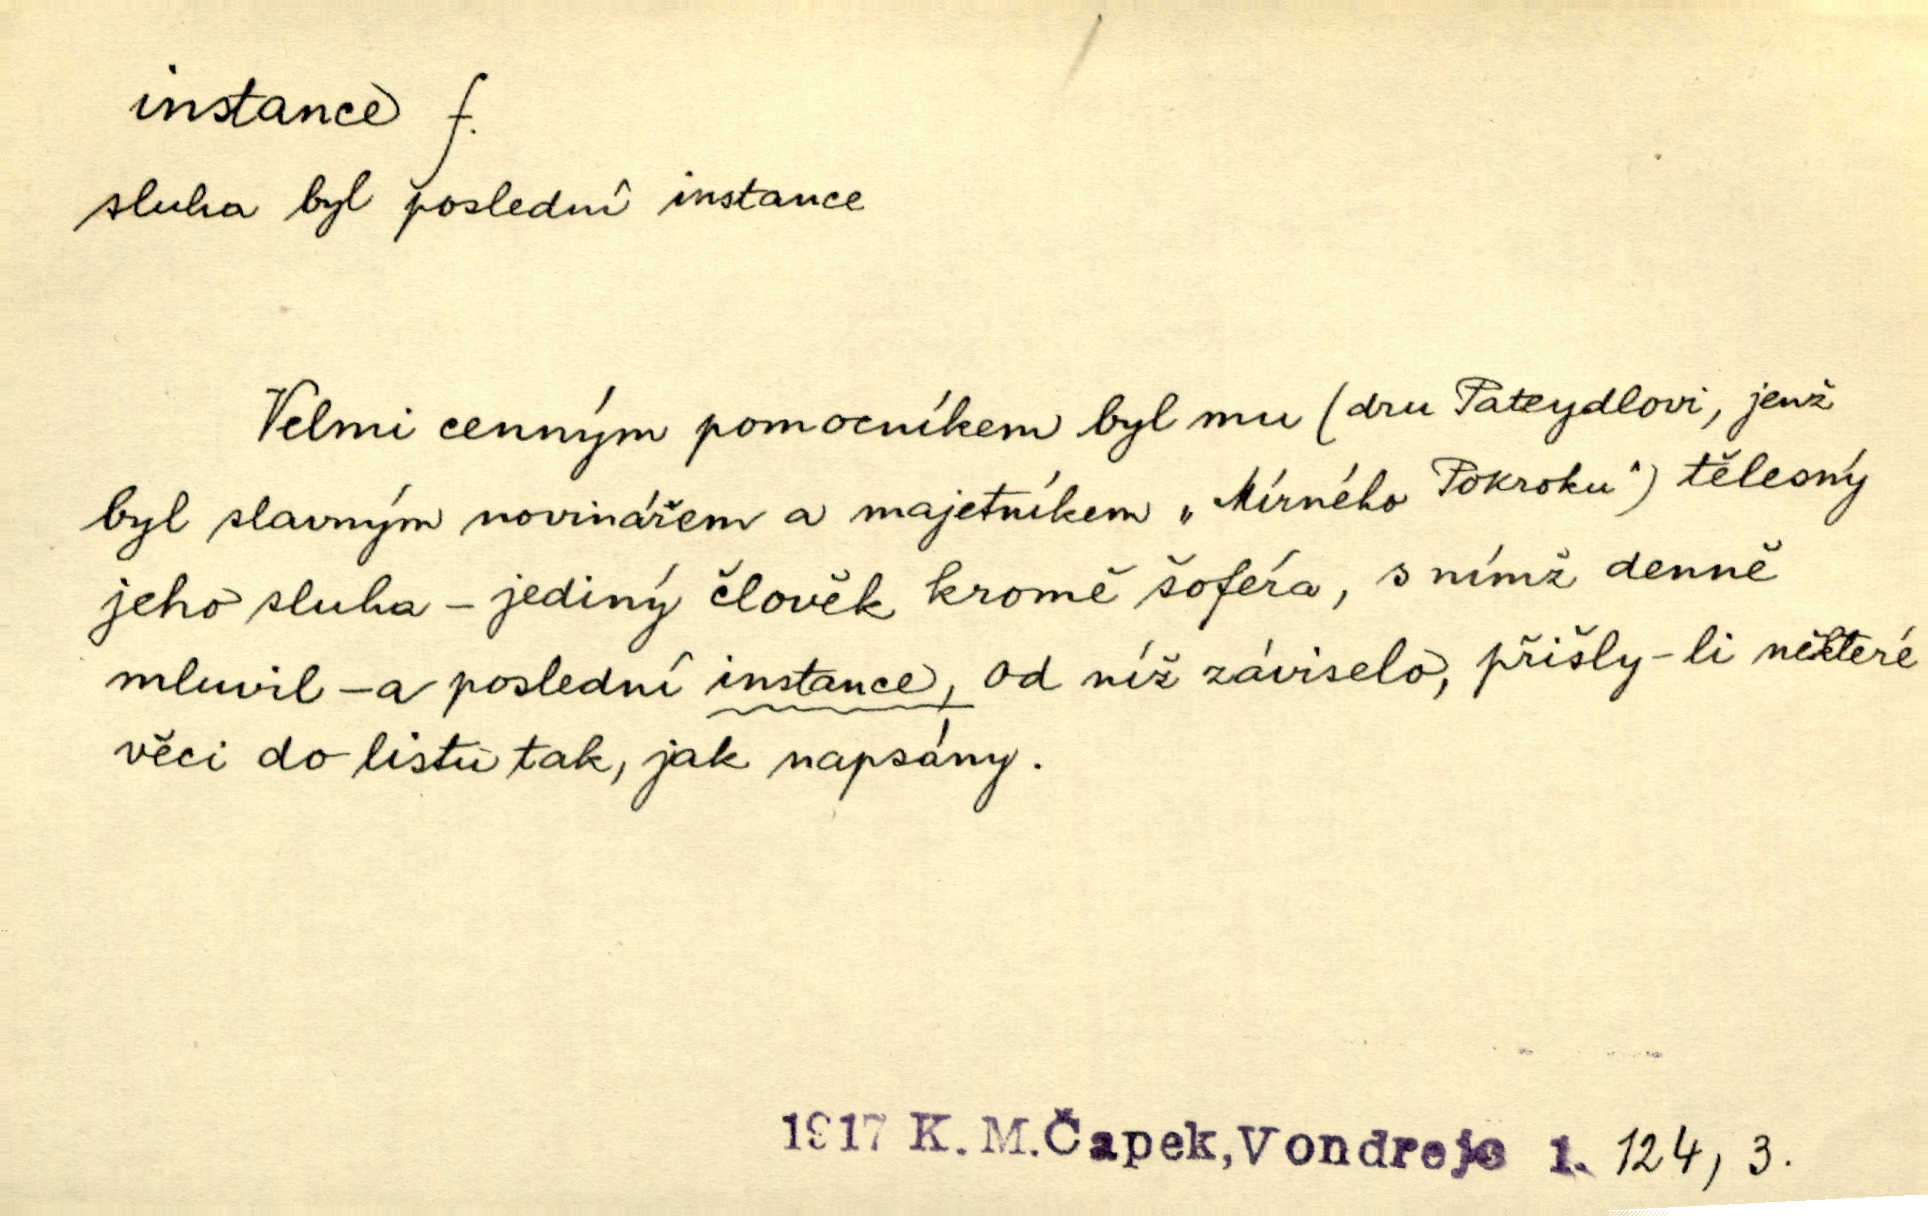 instance f.
sluha byl poslední instance
Velmi cenným pomocníkem byl mu (dru Pateydlovi, jenž
byl slavným novinářem a majetníkem „Mírného Pokroku“) tělesný
jeho sluha – jediný člověk kromě šoféra, s nímž denně
mluvil – a poslední instance, od níž záviselo, přišly-li některé
věci do listu tak, jak napsány.
1917 K. M. Čapek, Vondrejc 1. 124, 3.